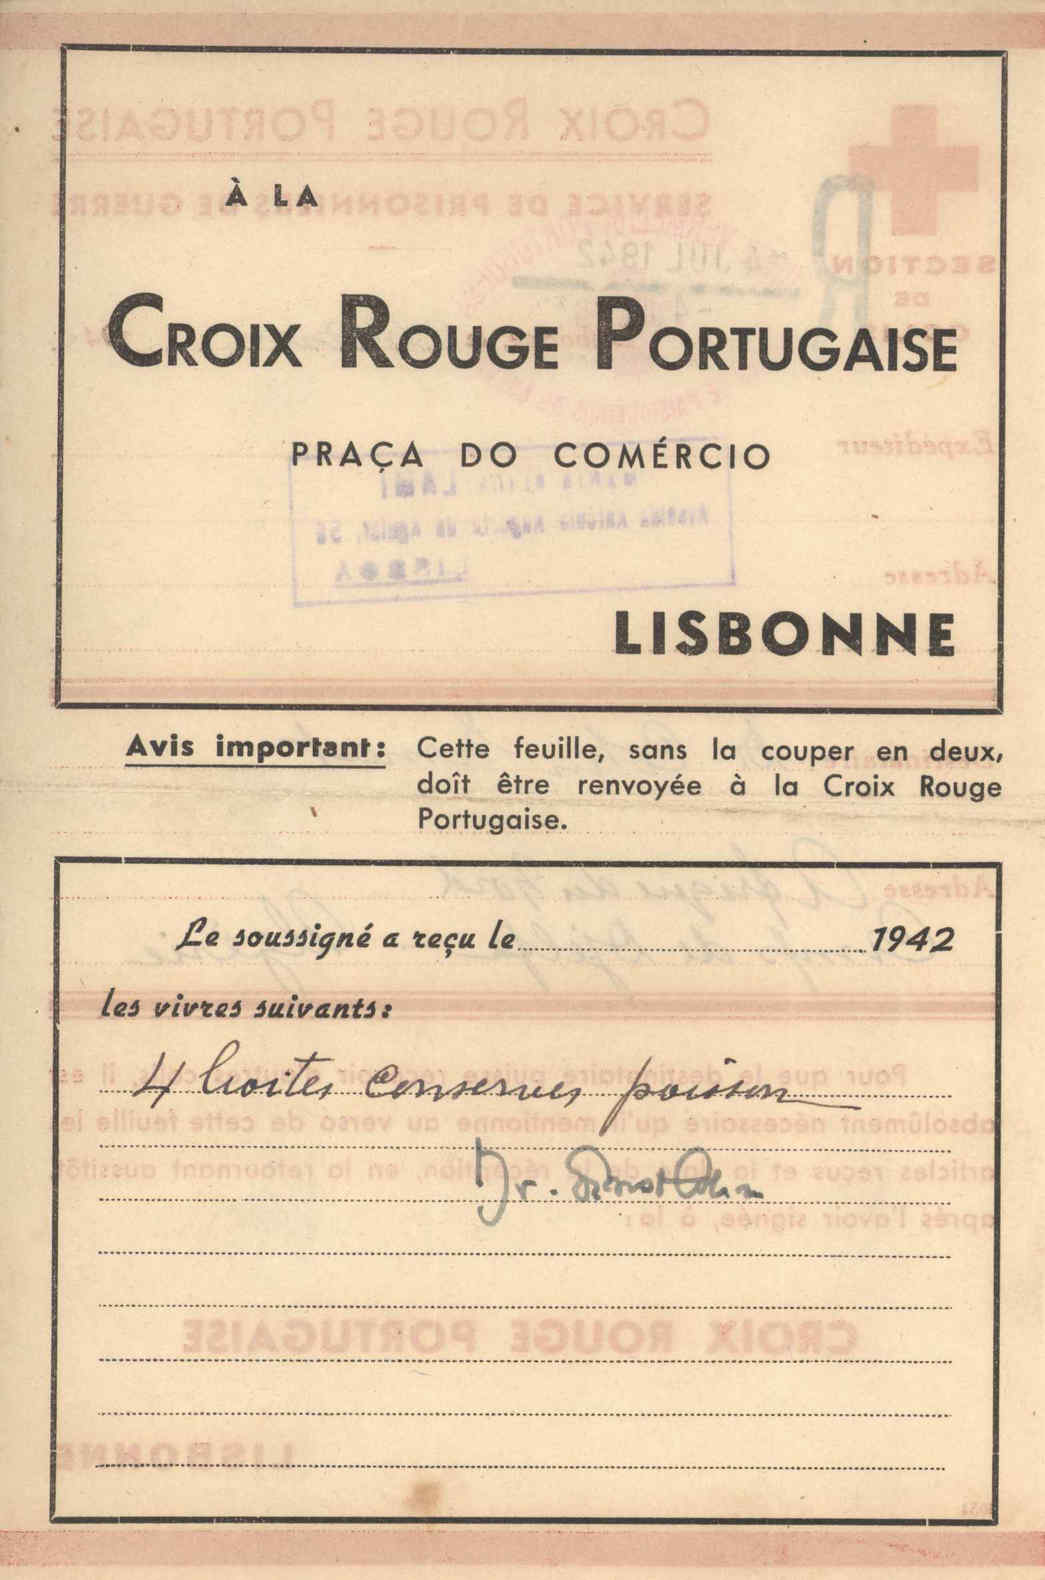 À LA
CROIX ROUGE PORTUGAISE
PRAÇA DO COMÉRCIO
LISBONNE
Avis important: Cette feuille, sans la couper en deux,
doît être renvoyée à la Croix Rouge
Portugaise.
Le soussigné a reçu le 1942
les vivres suivants:
4 boites conserves poisson
Dr. Ernst